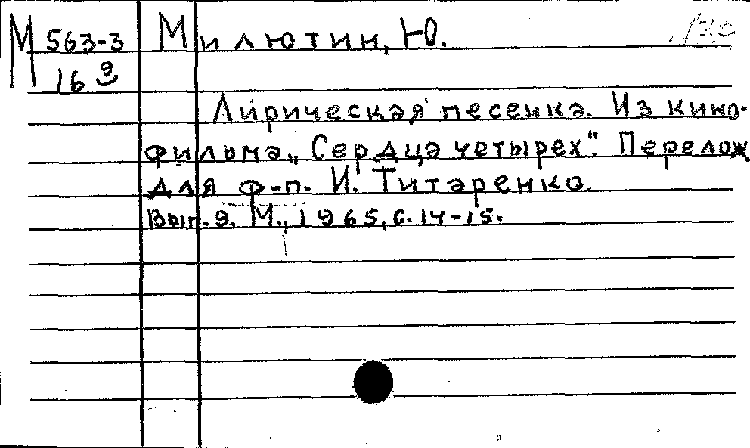 М 563-3 Милютин, Ю.
16 9
Лирическая песенка. Из кино-
фильма „Сердца четырех". Перелож
для ф-п. И. Титаренко.
Вып. 9. М., 1965, с. 14-15.